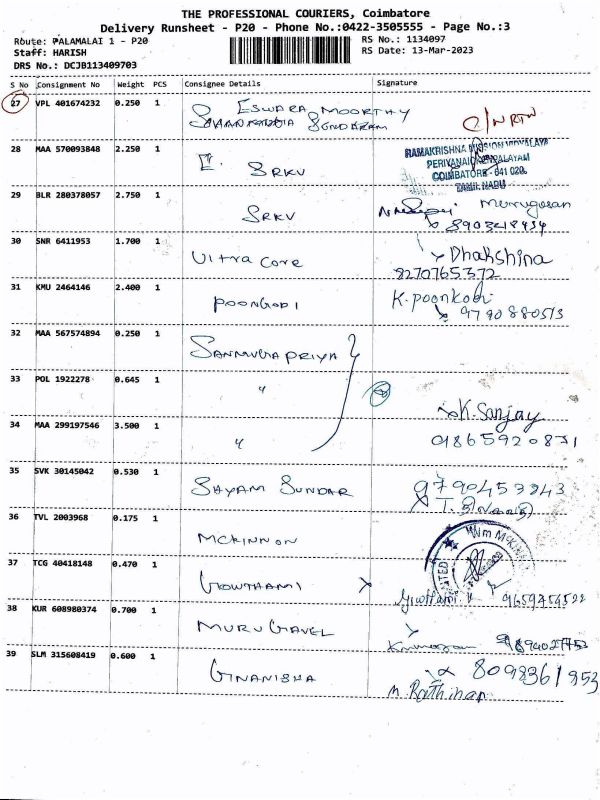 THE PROFESSIONAL COURIERS, Coimbatore
Delivery Runsheet - P20 - Phone No.:0422-3505555 - Page No.:3
Route: PALAMALAI 1 - P20
RS No.: 1134097
Staff: HARISH
RS Date: 13-Mar-2023
DRS No.: DCJB113409703
S No Consignment No Weight PCS Consignee Details Signature
27 VPL 401674232 0.250 1 ESWARA MOORTHY
SUNDARAM
28 MAA 570093848 2.250 1 SRKV
RAMAKRISHNA MISSION VIDYALAYA
PERIYANAICKENPALAYAM
COIMBATORE - 641 020.
TAMIL NADU
29 BLR 280378057 2.750 1 SRKV Murugesan
8903418434
30 SNR 6411953 1.700 1 Ultra Core Dhakshina
8270765372
31 KMU 2464146 2.400 1 POONGODI K. poonkodi
9790880513
32 MAA 567574894 0.250 1 SANMUGAPRIYA
33 POL 1922278 0.645 1 "
34 MAA 299197546 3.500 1 " K. Sanjay
01865920871
35 SVK 30145042 0.530 1 SHYAM SUNDAR 9790453243
36 TVL 2003968 0.175 1 MCKINNON
37 TCG 40418148 0.470 1 GOWTHAMI Gowthami 9659759522
38 KUR 608980374 0.700 1 MURUGAVEL
39 SLM 315608419 0.600 1 GNANISHA 8098361853